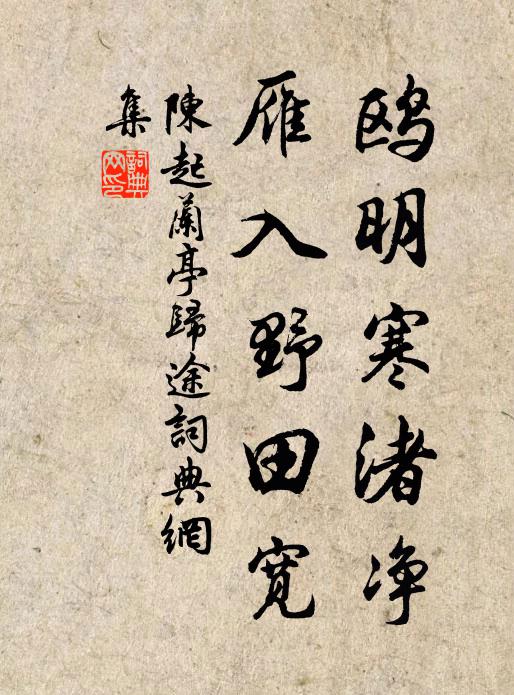 鸥明寒渚净
雁入野田寬
陳起蘭亭歸途詞典網
集
詞典网印